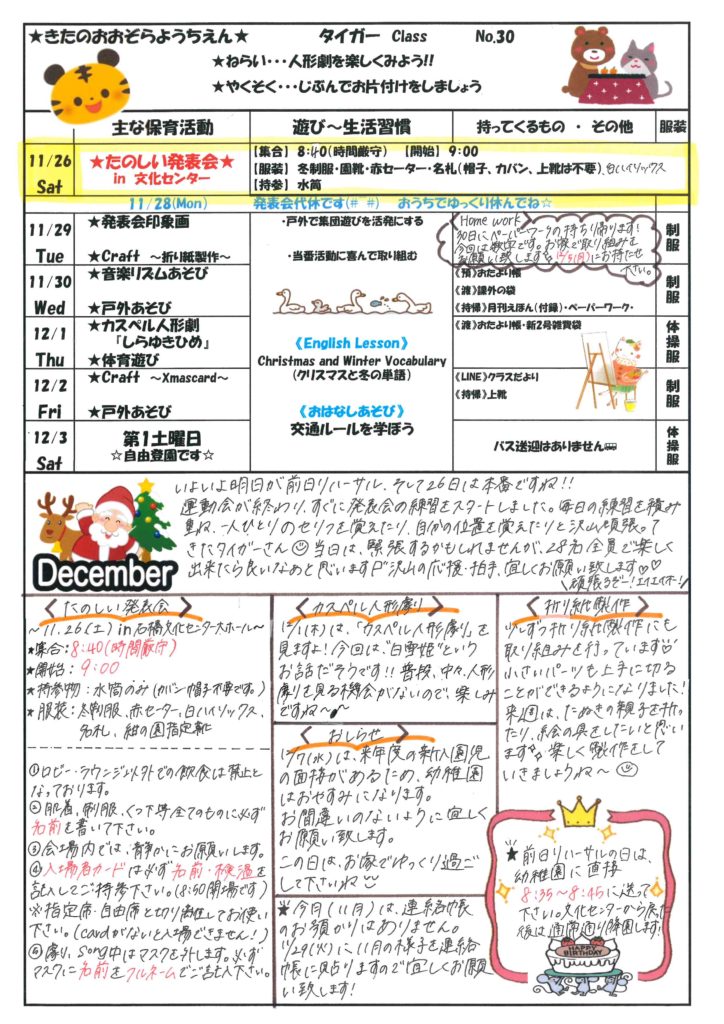 ★きたのおおぞらようちえん★ タイガー Class No.30
★ねらい・・・人形劇を楽しくみよう!!
★やくそく・・・じぶんでお片付けをしましょう
主な保育活動 遊び～生活習慣 持ってくるもの ・ その他 服装
11/26 Sat
★たのしい発表会★
in 文化センター
【集合】 8:40(時間厳守) 【開始】 9:00
【服装】 冬制服・園靴・赤セーター・名札(帽子、カバン、上靴は不要)、白ハイソックス
【持参】 水筒
11/28(Mon) 発表会代休です(#^#) おうちでゆっくり休んでね☆
11/29 Tue
★発表会印象画
★Craft ～折り紙製作～
・戸外で集団遊びを活発にする
・当番活動に喜んで取り組む
Home work
30日にペーパーワークの持ち帰ります!
今回は数字です。お家で取り組みを
お願い致します。12/5(月)にお持たせ
下さい。
制服
11/30 Wed
★音楽リズムあそび
★戸外あそび
《預》おたより帳
《渡》課外の袋
《持帰》月刊えほん(付録)・ペーパーワーク・
制服
12/1 Thu
★カスペル人形劇
「しらゆきひめ」
★体育遊び
《English Lesson》
Christmas and Winter Vocabulary
(クリスマスと冬の単語)
《渡》おたより帳・新2号雑費袋
体操服
12/2 Fri
★Craft ～Xmascard～
★戸外あそび
《おはなしあそび》
交通ルールを学ぼう
《LINE》クラスだより
《持帰》上靴
制服
12/3 Sat
第1土曜日
☆自由登園です☆
バス送迎はありません
体操服
December
いよいよ明日が前日リハーサル、そして26日は本番ですね!!
運動会が終わり、すぐに発表会の練習をスタートしました。毎日の練習を積み
重ね、一人ひとりのセリフを覚えたり、自分の位置を覚えたりと沢山頑張って
きたタイガーさん 当日は、緊張するかもしれませんが、28名全員で楽しく
出来たら良いなあと思います 沢山の応援・拍手、宜しくお願い致します♡♡
頑張るぞー!エイエイオー!
〈たのしい発表会〉
～11.26(土) in 石橋文化センター大ホール～
★集合:8:40(時間厳守)
★開始:9:00
★持参物:水筒のみ(カバン帽子不要です)
★服装:冬制服、赤セーター、白ハイソックス、
名札、紺の園指定靴
①ロビー・ラウンジ以外での飲食は禁止と
なっております。
②肌着、制服、くつ下等全てのものに必ず
名前を書いて下さい。
③会場内では、静かにお願いします。
④入場者カードは必ず名前・検温を
記入してご持参下さい。(8:50開場です)
※指定席・自由席と切り離してお使い
下さい。(cardがないと入場できません!)
⑤劇り、song中はマスクを外します。必ず
マスクに名前をフルネームでご記入下さい。
〈カスペル人形劇り〉
12/1(木)は、「カスペル人形劇り」を
見ますよ!今回は、“白雪姫”という
お話だそうです!!普段、中々、人形
劇りを見る機会がないので、楽しみ
ですね～♪
〈おしらせ〉
12/7(水)は、来年度の新入園児
の面接があるため、幼稚園
はおやすみになります。
お間違いのないように宜しく
お願い致します。
この日は、お家でゆっくり過ご
して下さいね
★今月(11月)は、連絡帳
のお預かりはありません。
11/29(火)に11月の様子を連絡
帳に貼りますので宜しくお願
い致します!
〈折り紙製作〉
少しずつ折り紙製作にも
取り組みを行っています
小さいパーツも上手に切る
ことができるようになりました!
来週は、たぬきの親子を折っ
たり、絵の具をしたいと思い
ます 楽しく製作をして
いきましょうね～
★前日リハーサルの日は、
幼稚園に直接
8:35～8:45に送って
下さい。文化センターから戻った
後は通常通り降園します!
HAPPY BIRTHDAY